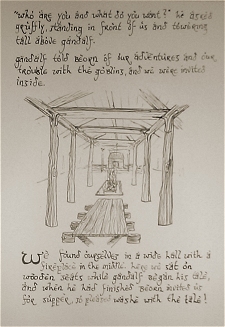 "who are you and what do you want?" he asked
gruffly, standing in front of us and towering
tall above gandalf.
gandalf told Beorn of our adventures and our
trouble with the goblins, and we were invited
inside.
We found ourselves in a wide hall with a
fireplace in the middle. here we sat on
wooden seats while gandalf began his tale,
and when he had finished Beorn invited us
for supper, so pleased was he with the tale!